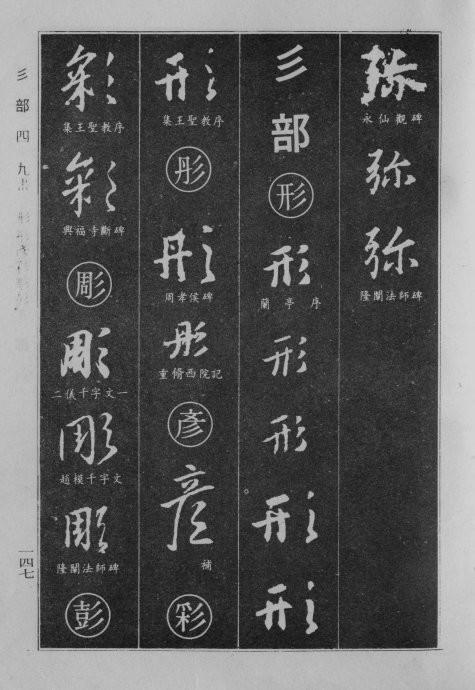 弥
永仙觀碑
弥
弥
隆闡法師碑
彡部
形
形
蘭亭序
形
形
形
形
形
集王聖教序
彤
彤
周孝侯碑
彤
重脩西院記
彥
彥
補
彩
彩
集王聖教序
彩
興福寺斷碑
彫
彫
二儀千字文一
彫
趙模千字文
彫
隆闡法師碑
彭
彡部四 九
一四七